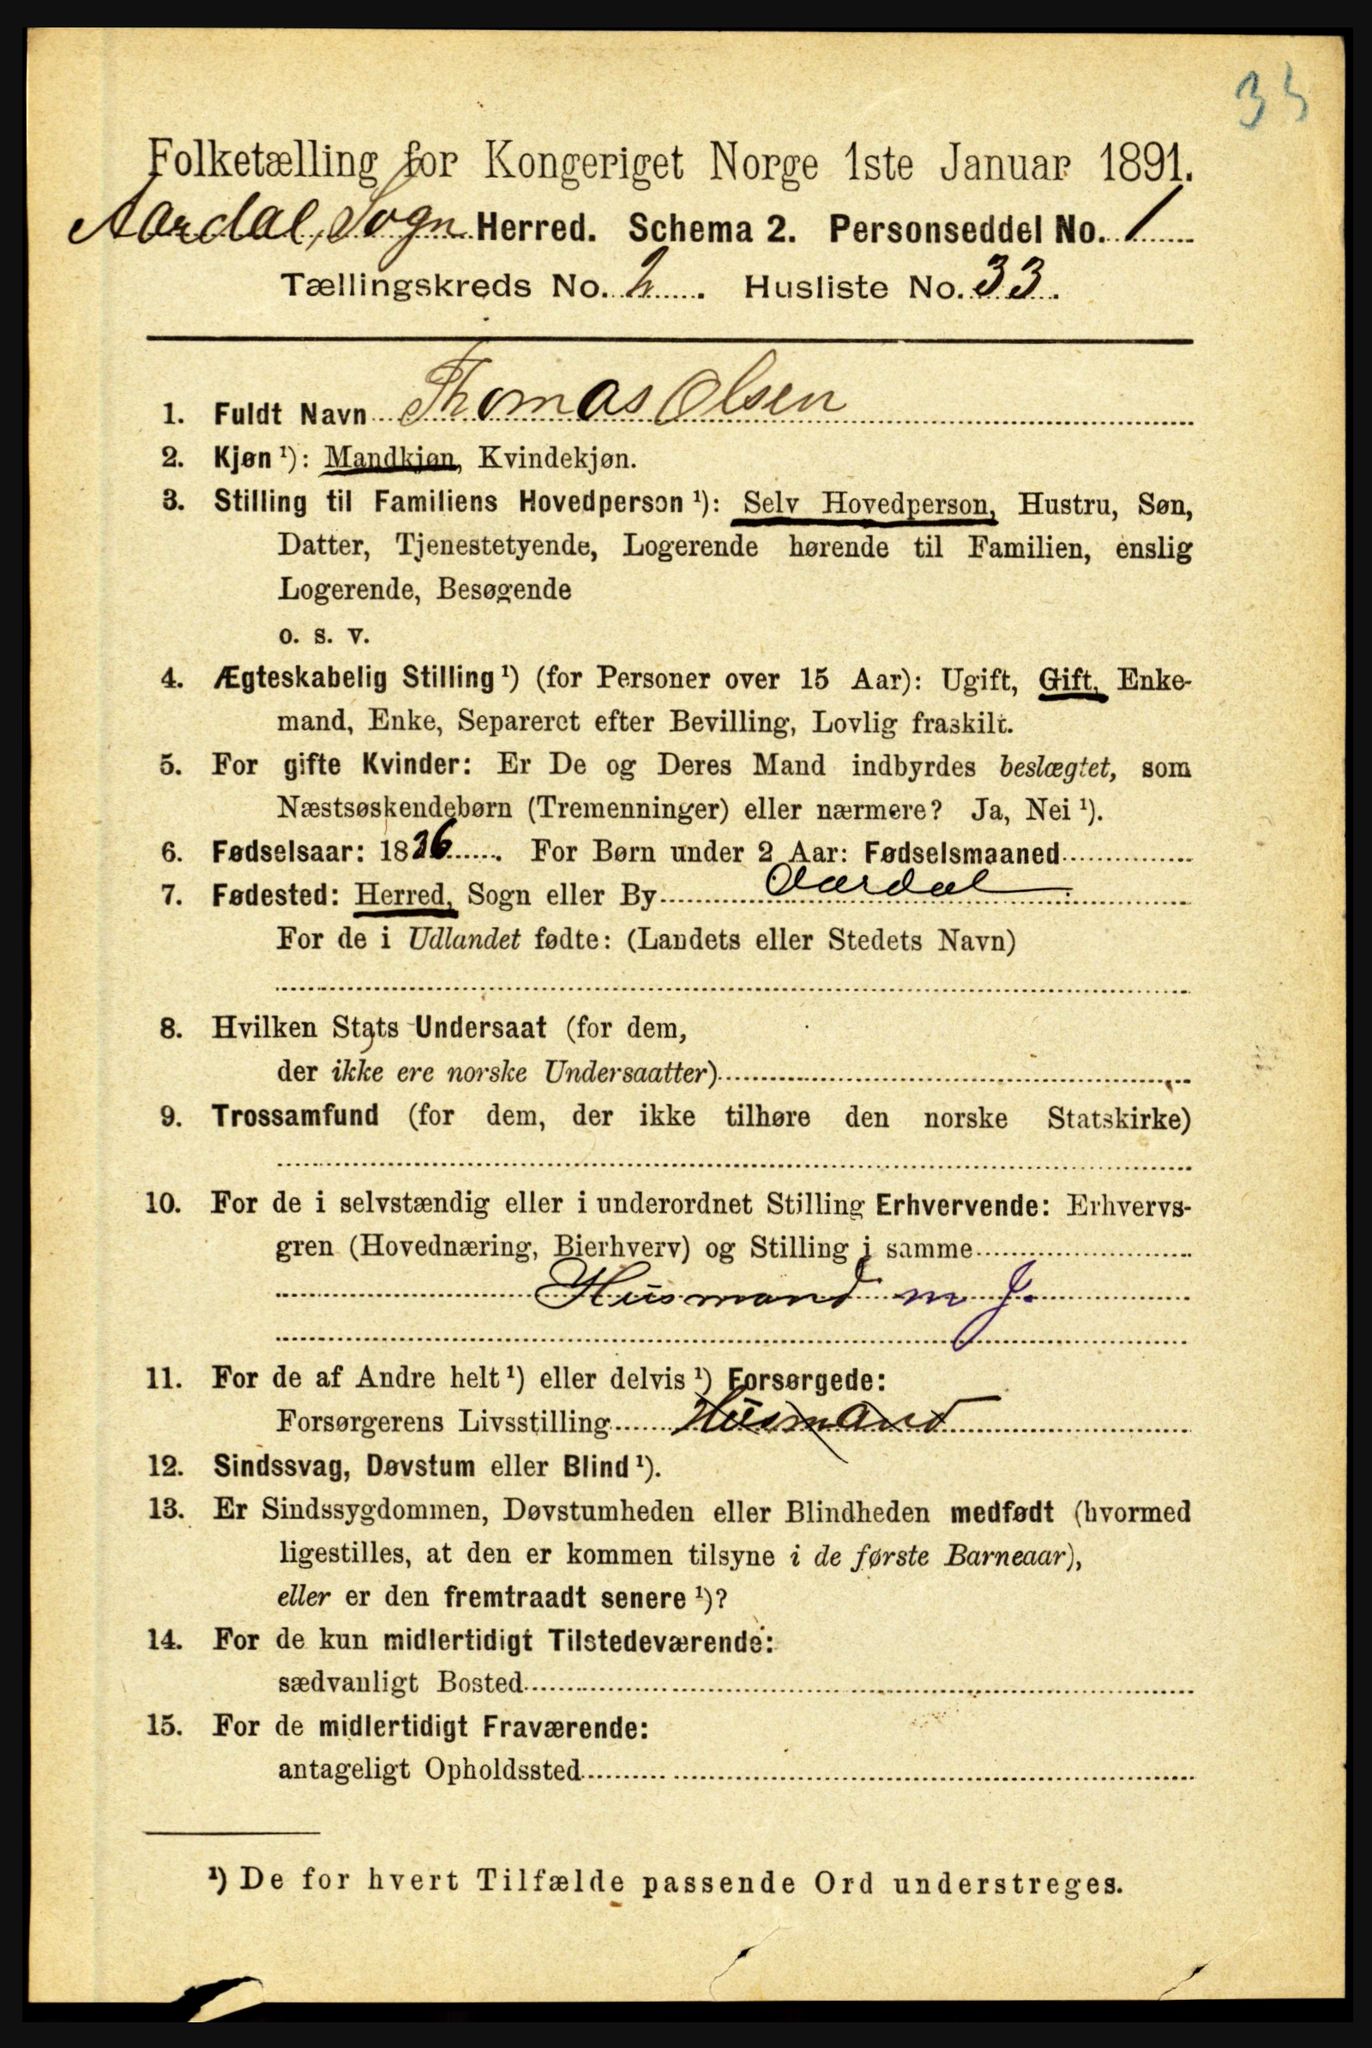 33
Folketælling for Kongeriget Norge 1ste Januar 1891.
Aardal, Sogn Herred. Schema 2. Personseddel No. 1
Tællingskreds No. 2. Husliste No. 33.
1. Fuldt Navn Thomas Olsen
2. Kjøn ¹): Mandkjøn, Kvindekjøn.
3. Stilling til Familiens Hovedperson ¹): Selv Hovedperson, Hustru, Søn,
Datter, Tjenestetyende, Logerende hørende til Familien, enslig
Logerende, Besøgende
o. s. v.
4. Ægteskabelig Stilling ¹) (for Personer over 15 Aar): Ugift, Gift, Enke-
mand, Enke, Separeret efter Bevilling, Lovlig fraskilt.
5. For gifte Kvinder: Er De og Deres Mand indbyrdes beslægtet, som
Næstsøskendebørn (Tremenninger) eller nærmere? Ja, Nei ¹).
6. Fødselsaar: 1826. For Børn under 2 Aar: Fødselsmaaned
7. Fødested: Herred, Sogn eller By Aardal
For de i Udlandet fødte: (Landets eller Stedets Navn)
8. Hvilken Stats Undersaat (for dem,
der ikke ere norske Undersaatter)
9. Trossamfund (for dem, der ikke tilhøre den norske Statskirke)
10. For de i selvstændig eller i underordnet Stilling Erhvervende: Erhvervs-
gren (Hovednæring, Bierhverv) og Stilling i samme
Husmand m J.
11. For de af Andre helt ¹) eller delvis ¹) Forsørgede:
Forsørgerens Livsstilling Husmand
12. Sindssvag, Døvstum eller Blind ¹).
13. Er Sindssygdommen, Døvstumheden eller Blindheden medfødt (hvormed
ligestilles, at den er kommen tilsyne i de første Barneaar),
eller er den fremtraadt senere ¹)?
14. For de kun midlertidigt Tilstedeværende:
sædvanligt Bosted
15. For de midlertidigt Fraværende:
antageligt Opholdssted
¹) De for hvert Tilfælde passende Ord understreges.